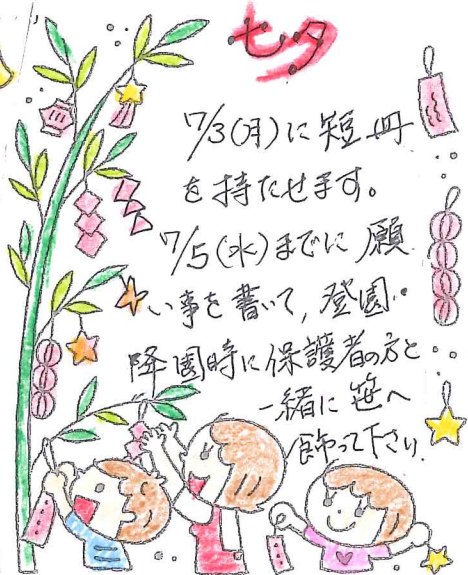 七夕
7/3(月)に短冊
を持たせます。
7/5(水)までに願
い事を書いて,登園・
降園時に保護者の方と
一緒に笹へ
飾って下さい.